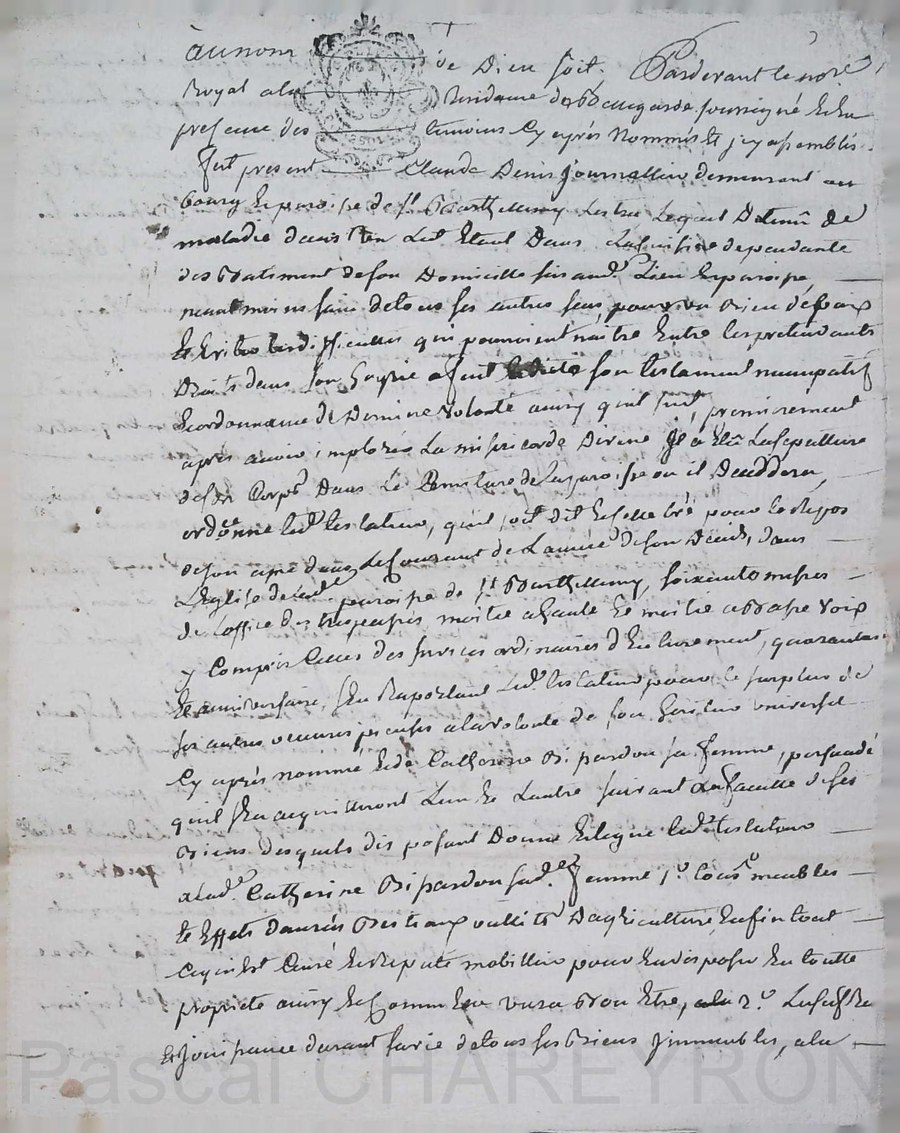 au nom de Dieu soit. Pardevant le nore
Royal a la Residance de Beauregard soussigné Et En
presence des temoins Cy aprés Nommés Et
fut present Claude Denis Journallier demeurant au
bourg Et paroisse de St Barthellemy Lestra Lequel Detenû de
maladie dans son Lit Etant Dans La Cuisine dependante
des Batiment de son Domicille sis aud. Lieu Et paroisse
neant moins sain de tous ses autres sens, pour son Bien déposer
Et Eviter les difficultés qui pourroient naitre Entre les pretendants
Droits dans son hoyrie a fait son testament nuncupatif
Et ordonnance de Derniere volonté ainsy quil suit, premierement
aprés avoir imploré La misericorde Divine Il a Elû La sepulture
de son Corps Dans Le Cimetiere de la paroisse ou il Deceddera,
ordonne led. testateur, quil soit dit Et Cellebré pour le Repos
de son ame dans Le Courant de L'année de son Décés, dans
L'Eglise de lad. paroisse de St Barthellemy, soixante messes
de l'office des trepassés moitié a haute Et moitié a Basse Voix
y Compris Celles des services ordinaires d'Enterrement, quarantaine
Et anniversaire, s'En Raportant Led. testateur pour le surplus de
ses autres oeuvres pieuses a la volonté de son heritier universel
Cy aprés nommé Et de Catherine Bipardon sa femme, persuadé
quil s'En acquitteront L'un Et Lautre suivant La faculté de ses
Biens desquels disposant Donne Et legue led. testateur
a lad. Catherine Bipardon sad. femme 1o. tous ses meubles
Et Effets danrés Bestiaux outils D'agriculture Enfin tout
Ce qui Est Censé Et Reputé mobillier pour En disposer En toutte
proprieté ainsy Et Comme Elle verra Bon Etre, 2o. L'usufruit
Et Jouissance durant sa vie de tous ses Biens Jmmeubles, a la
Pascal CHAREYRON